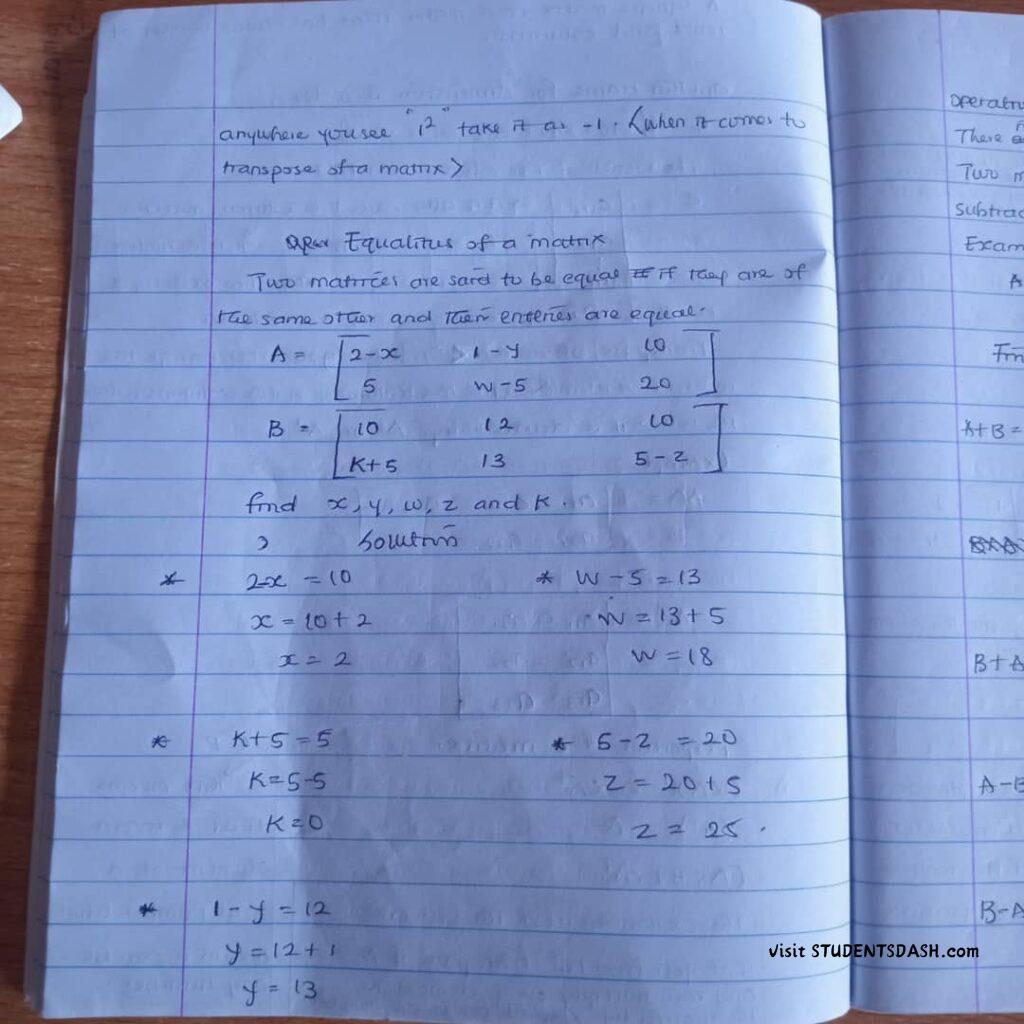 anywhere you see "i²" take it as -1. <when it comes to
transpose of a matrix>
Equalitus of a matrix
Two matrices are said to be equal if they are of
the same other and then enteries are equal.
A = [ 2-x 1-y 10
5 w-5 20 ]
B = [ 10 12 10
K+5 13 5-z ]
find x, y, w, z and k.
Solution
* 2-x = 10 * w-5 = 13
x = 10+2 w = 13+5
x = 2 w = 18
* K+5 = 5 * 5-z = 20
K = 5-5 z = 20+5
K = 0 z = 25.
* 1-y = 12
y = 12+1
y = 13
There
Two m
Subtrac
Exam
A
A+B =
B+A
A-B
B-A
visit STUDENTSDASH.com